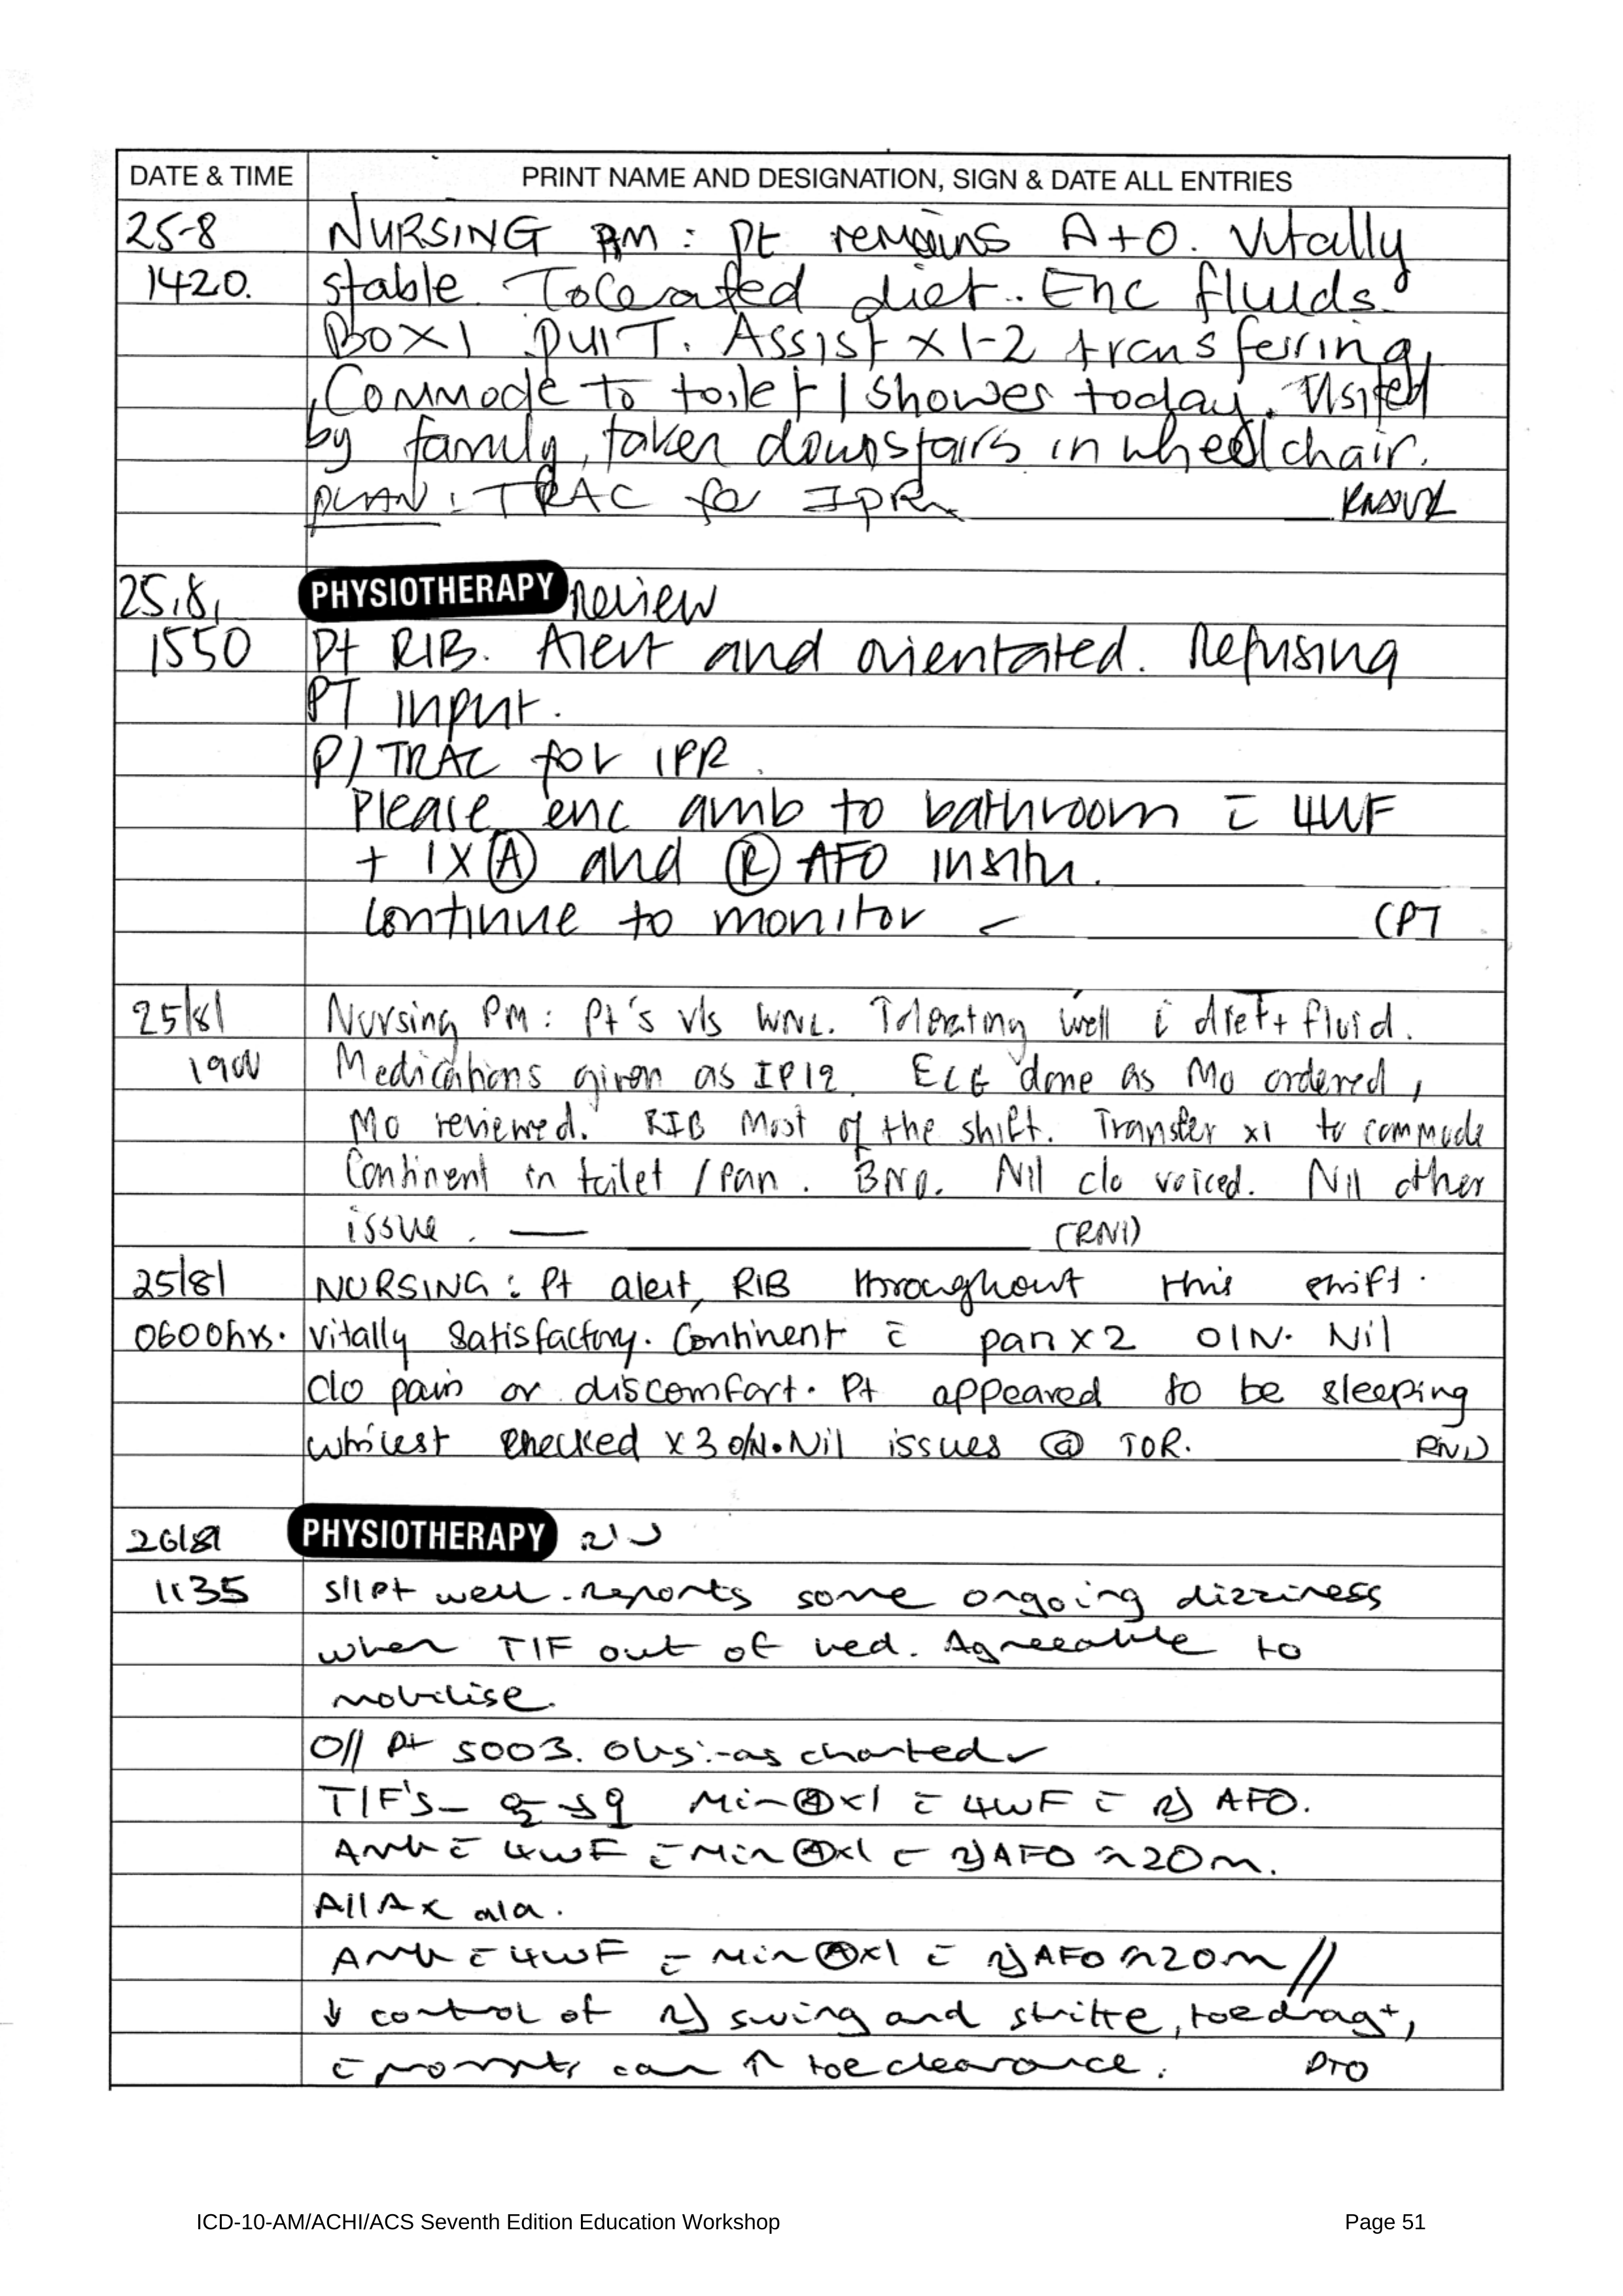 DATE & TIME PRINT NAME AND DESIGNATION, SIGN & DATE ALL ENTRIES
25-8 NURSING AM: Pt remains A+O. Vitally
1420. stable. Tolerated diet.. Enc fluids.
BOX1 PUIT. Assist x1-2 transferring,
Commode to toilet / shower today. Visited
by family, taken downstairs in wheelchair.
PLAN: TRAC for IPR
25.8, PHYSIOTHERAPY review
1550 Pt RIB. Alert and orientated. Refusing
PT input.
P) TRAC for IPR.
Please enc amb to bathroom c̄ 4WF
+ 1x Ⓐ and Ⓡ AFO insitu.
Continue to monitor (PT
25/8/ Nursing PM: Pt's v/s WNL. Tolerating well c̄ diet + fluid.
1900 Medications given as ECG done as MO ordered,
MO reviewed. RIB Most of the shift. Transfer x1 to commode
Continent in toilet / Pan. BNO. Nil c/o voiced. Nil other
issue. (RN1)
25/8/ NURSING: Pt alert, RIB throughout this shift.
0600hrs. Vitally satisfactory. Continent c̄ pan x2 O/N. Nil
c/o pain or discomfort. Pt appeared to be sleeping
whilest checked x3 o/N. Nil issues @ TOR. RN1)
26/8 PHYSIOTHERAPY
1135 S// Pt well. Reports some ongoing dizziness
when T/F out of bed. Agreeable to
mobilise.
O// Pt SOOB. Obs:-as charted ✓
T/F's- Min Ⓐx1 c̄ 4WF c̄ R) AFO.
Amb c̄ 4WF c̄ Min Ⓐx1 c̄ R) AFO ≈20m.
A// Ax a/a.
Amb c̄ 4WF c̄ Min Ⓐx1 c̄ R) AFO ≈20m //
↓ control of R) swing and strike, toe drag+,
c̄ prompts can ↑ toe clearance. PTO
ICD-10-AM/ACHI/ACS Seventh Edition Education Workshop Page 51